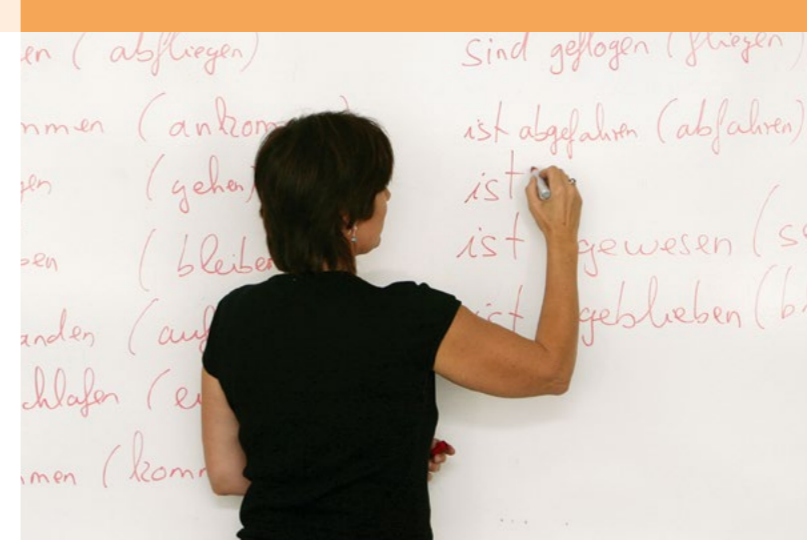 en (abfliegen)
mmen (ankom
en (gehen)
ben (bleiben
anden (auf
chlafen (ei
mmen (komm
sind geflogen (fliegen)
ist abgefahren (abfahren)
ist
ist gewesen (se
ist geblieben (b